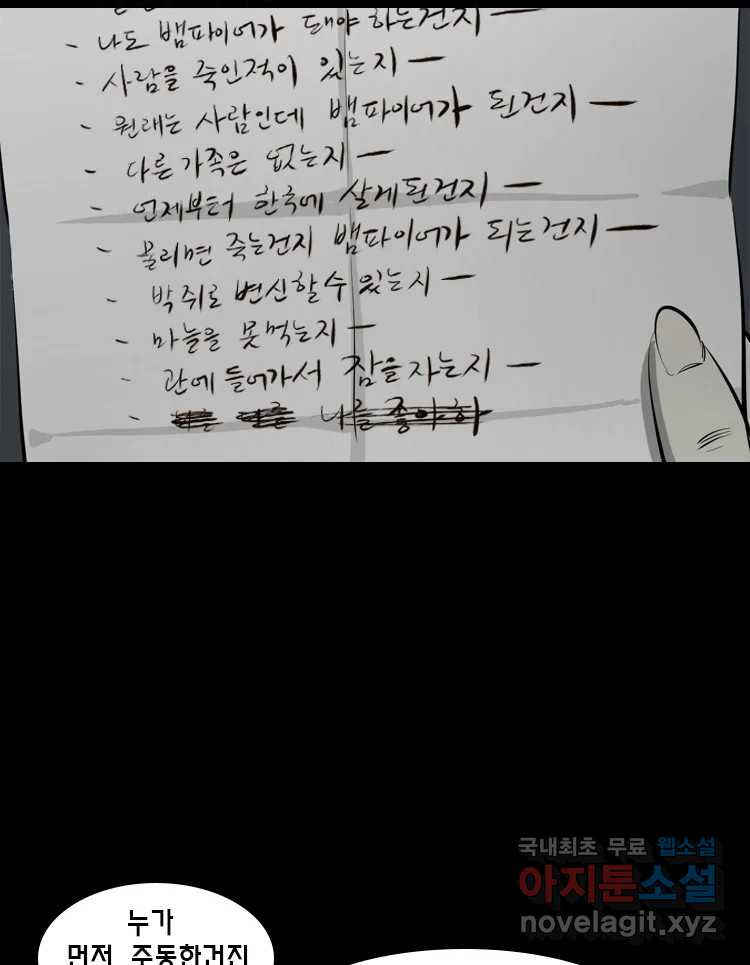 - 나도 뱀파이어가 돼야 하는건지 —
- 사람을 죽인적이 있는지 —
- 원래는 사람인데 뱀파이어가 된건지 —
- 다른 가족은 없는지 —
- 언제부터 한국에 살게된건지 —
- 물리면 죽는건지 뱀파이어가 되는건지 —
- 박쥐로 변신할수 있는지 —
- 마늘을 못먹는지 —
- 관에 들어가서 잠을 자는지 —
- 나를 좋아하
국내최초 무료 웹소설
아지툰소설
novelagit.xyz
누가
먼저 주동한건진